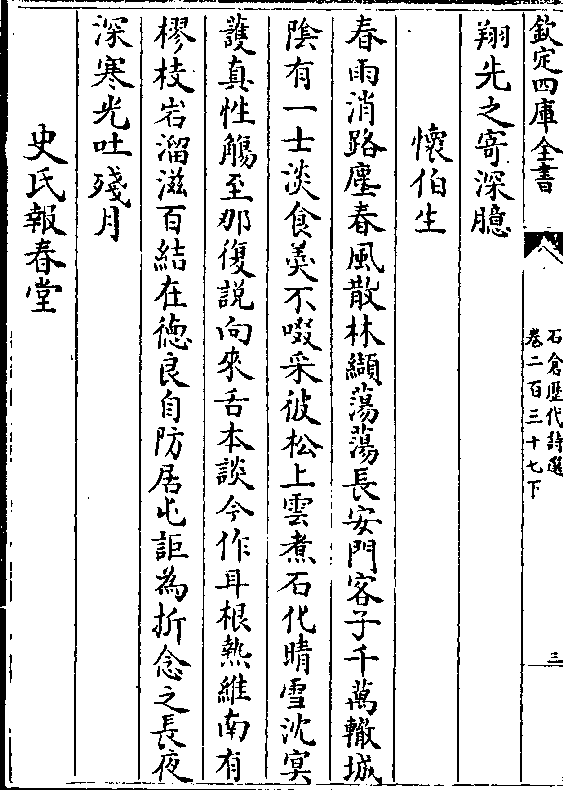 欽定四庫全書
石倉歴代詩選
卷二百三十七下
三
翔先之寄深臆
懷伯生
春雨消路塵春風散林纈蕩蕩長安門客子千萬轍城
隂有一士淡食羮不啜采彼松上雲煮石化晴雪沈冥
䕶真性觴至那復説向來舌本談今作耳根熱維南有
樛枝岩溜滋百結在徳良自防居屯詎為折念之長夜
深寒光吐殘月
史氏報春堂